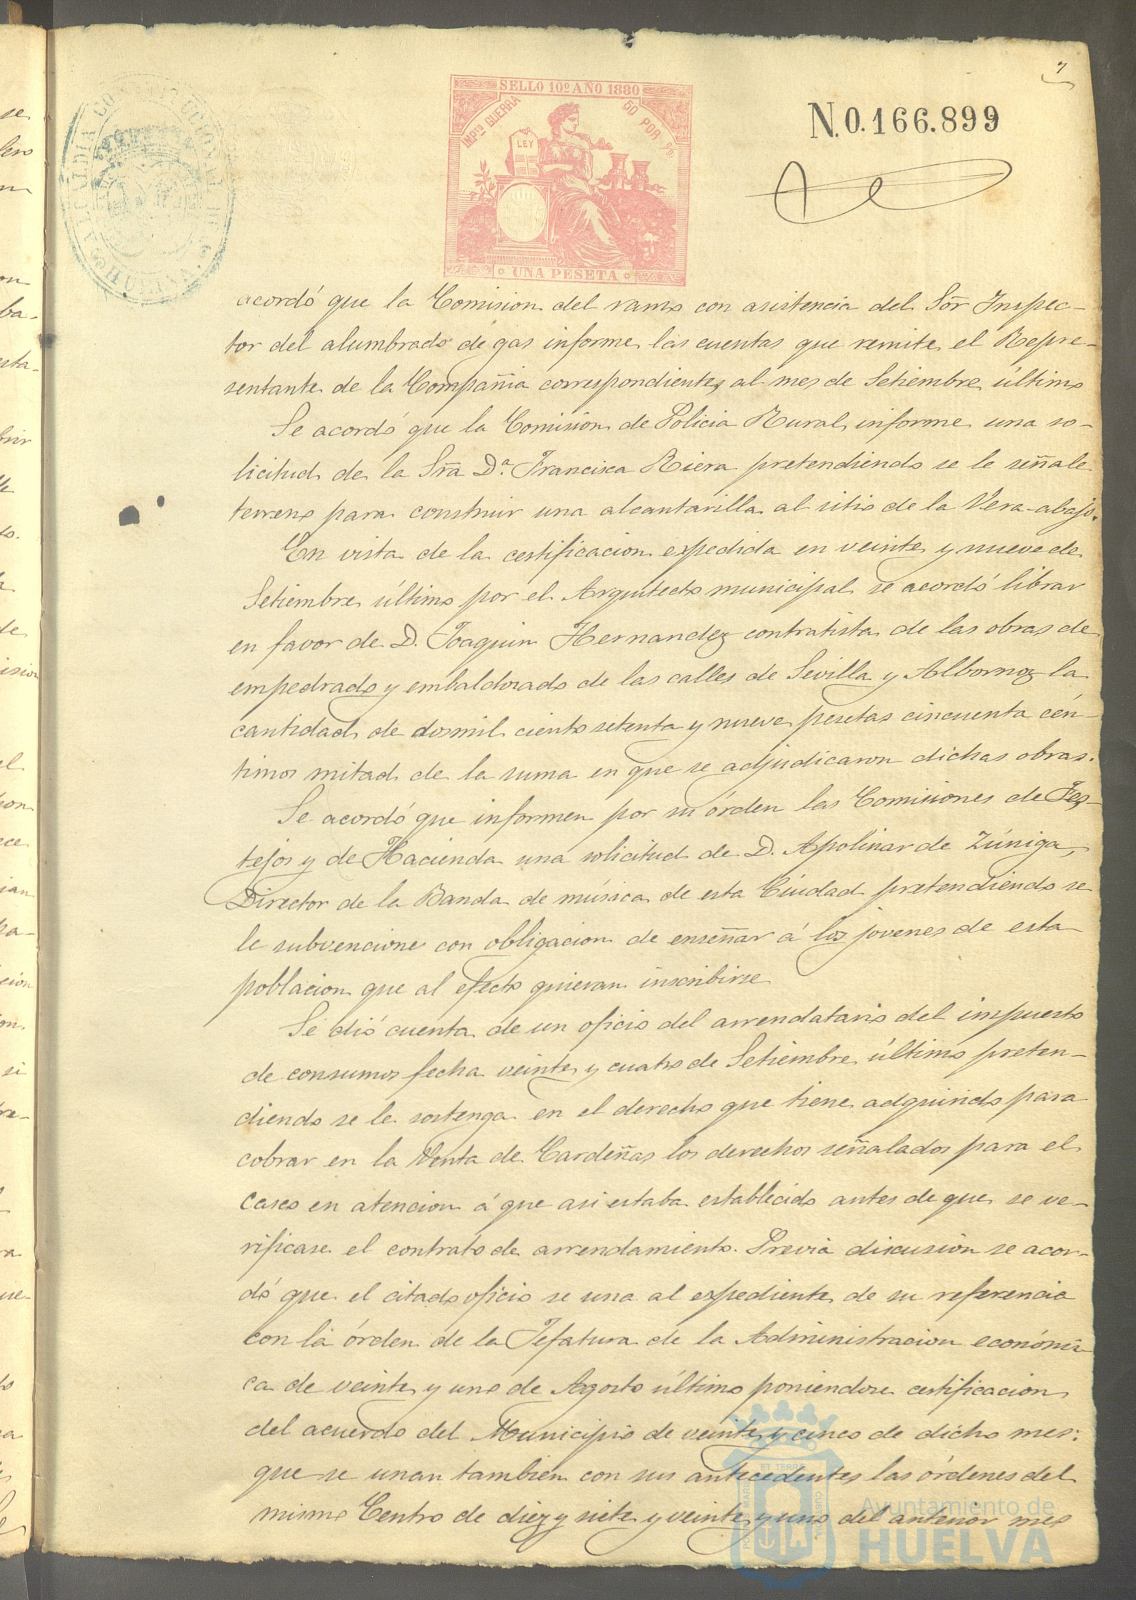 7
SELLO 10º AÑO 1880
IMPTO GUERRA
50 POR %
LEY
UNA PESETA
N.0.166.899
ALCALDIA CONSTITUCIONAL DE
HUELVA
acordó que la Comision del ramo con asistencia del Sõr Inspec-
tor del alumbrado de gas informe las cuentas que remite el Repre-
sentante de la Compañia correspondientes al mes de Setiembre último
Se acordó que la Comision de Policia Rural informe una so-
licitud de la Srã Dª Francisca Riera pretendiendo se le señale
terreno para construir una alcantarilla al sitio de la Vera-abajo.
En vista de la certificacion expedida en veinte y nueve de
Setiembre último por el Arquitecto municipal se acordó librar
en favor de D. Joaquin Hernandez contratista de las obras de
empedrado y embaldosado de las calles de Sevilla y Albornoz la
cantidad de dosmil ciento setenta y nueve pesetas cincuenta cén-
timos mitad de la suma en que se adjudicaron dichas obras.
Se acordó que informen por su órden las Comisiones de Fes-
tejos y de Hacienda una solicitud de D. Apolinar de Zúñiga,
Director de la Banda de música de esta Ciudad pretendiendo se
le subvencione con obligacion de enseñar á los jovenes de esta
poblacion que al efecto quieran inscribirse
Se dió cuenta de un oficio del arrendatario del impuesto
de consumos fecha veinte y cuatro de Setiembre último preten-
diendo se le sostenga en el derecho que tiene adquirido para
cobrar en la Venta de Cardeñas los derechos señalados para el
casco en atencion á que asi estaba establecido antes de que se ve-
rificase el contrato de arrendamiento. Previa discusion se acor-
dó que el citado oficio se una al expediente de su referencia
con la órden de la Jefatura de la Administracion económi-
ca de veinte y uno de Agosto último poniendose certificacion
del acuerdo del Municipio de veinte y cinco de dicho mes:
que se unan tambien con sus antecedentes las órdenes del
mismo Centro de diez y siete y veinte y uno del anterior mes
Ayuntamiento de
HUELVA